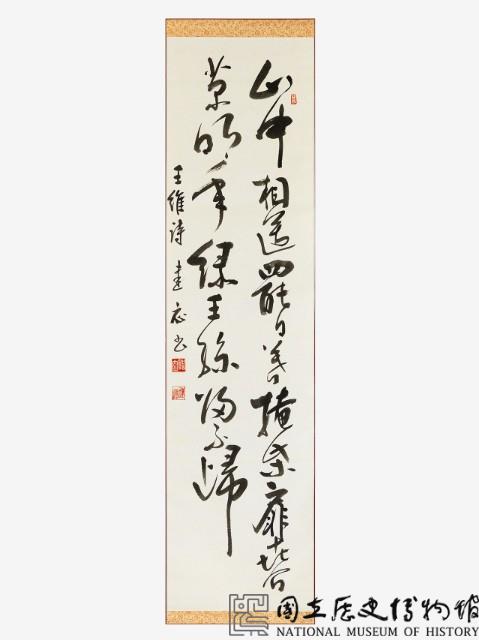 山中相送罷日暮掩柴扉春
草明年綠王孫歸不歸
王維詩 書
國立歷史博物館
NATIONAL MUSEUM OF HISTORY